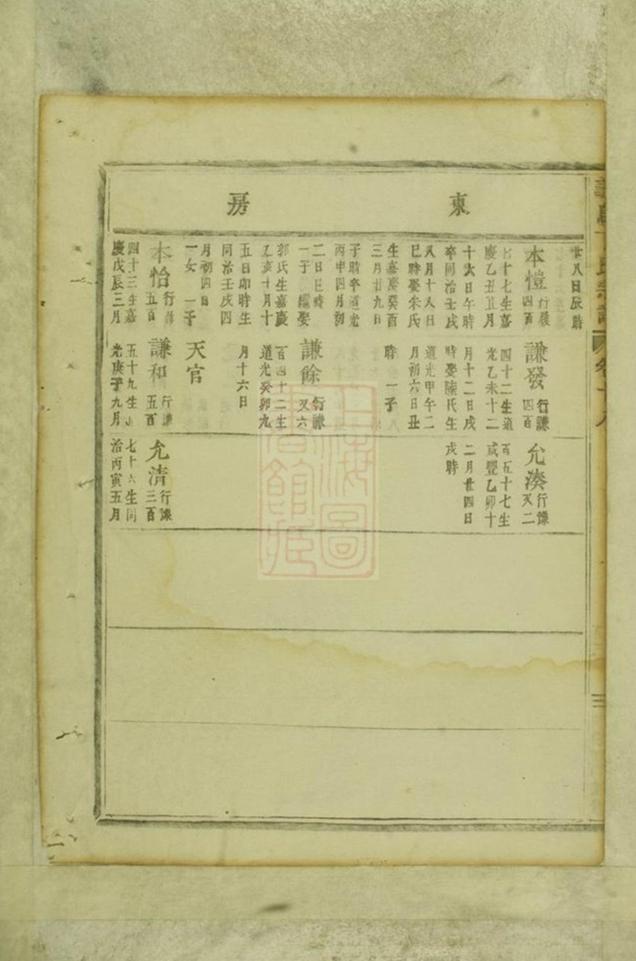 東
房
廿八日辰時
本愷
行嚴
四百
七十七生嘉
慶乙丑五月
十六日午時
卒同治壬戌
八月十八日
巳時娶朱氏
生嘉慶癸酉
三月廿九日
子時卒道光
丙申四月初
二日巳時
一子 繼娶
郭氏生嘉慶
乙亥十月十
五日卯時生
同治壬戌四
月初四日
一女 一子
本怡
五百
四十三生嘉
慶戊辰三月
謙發
行謙
四百
四十二生道
光乙未十二
月十二日戌
時娶陸氏生
道光甲午二
月初六日丑
時 一子
謙餘
行謙
又六
百四十二生
道光癸卯九
月十六日
天官
謙和
行謙
五百
五十九生
光庚子九月
允湊
行謙
又二
百五十七生
咸豐乙卯十
二月廿四日
戌時
允清
行謙
三百
七十六生同
治丙寅五月